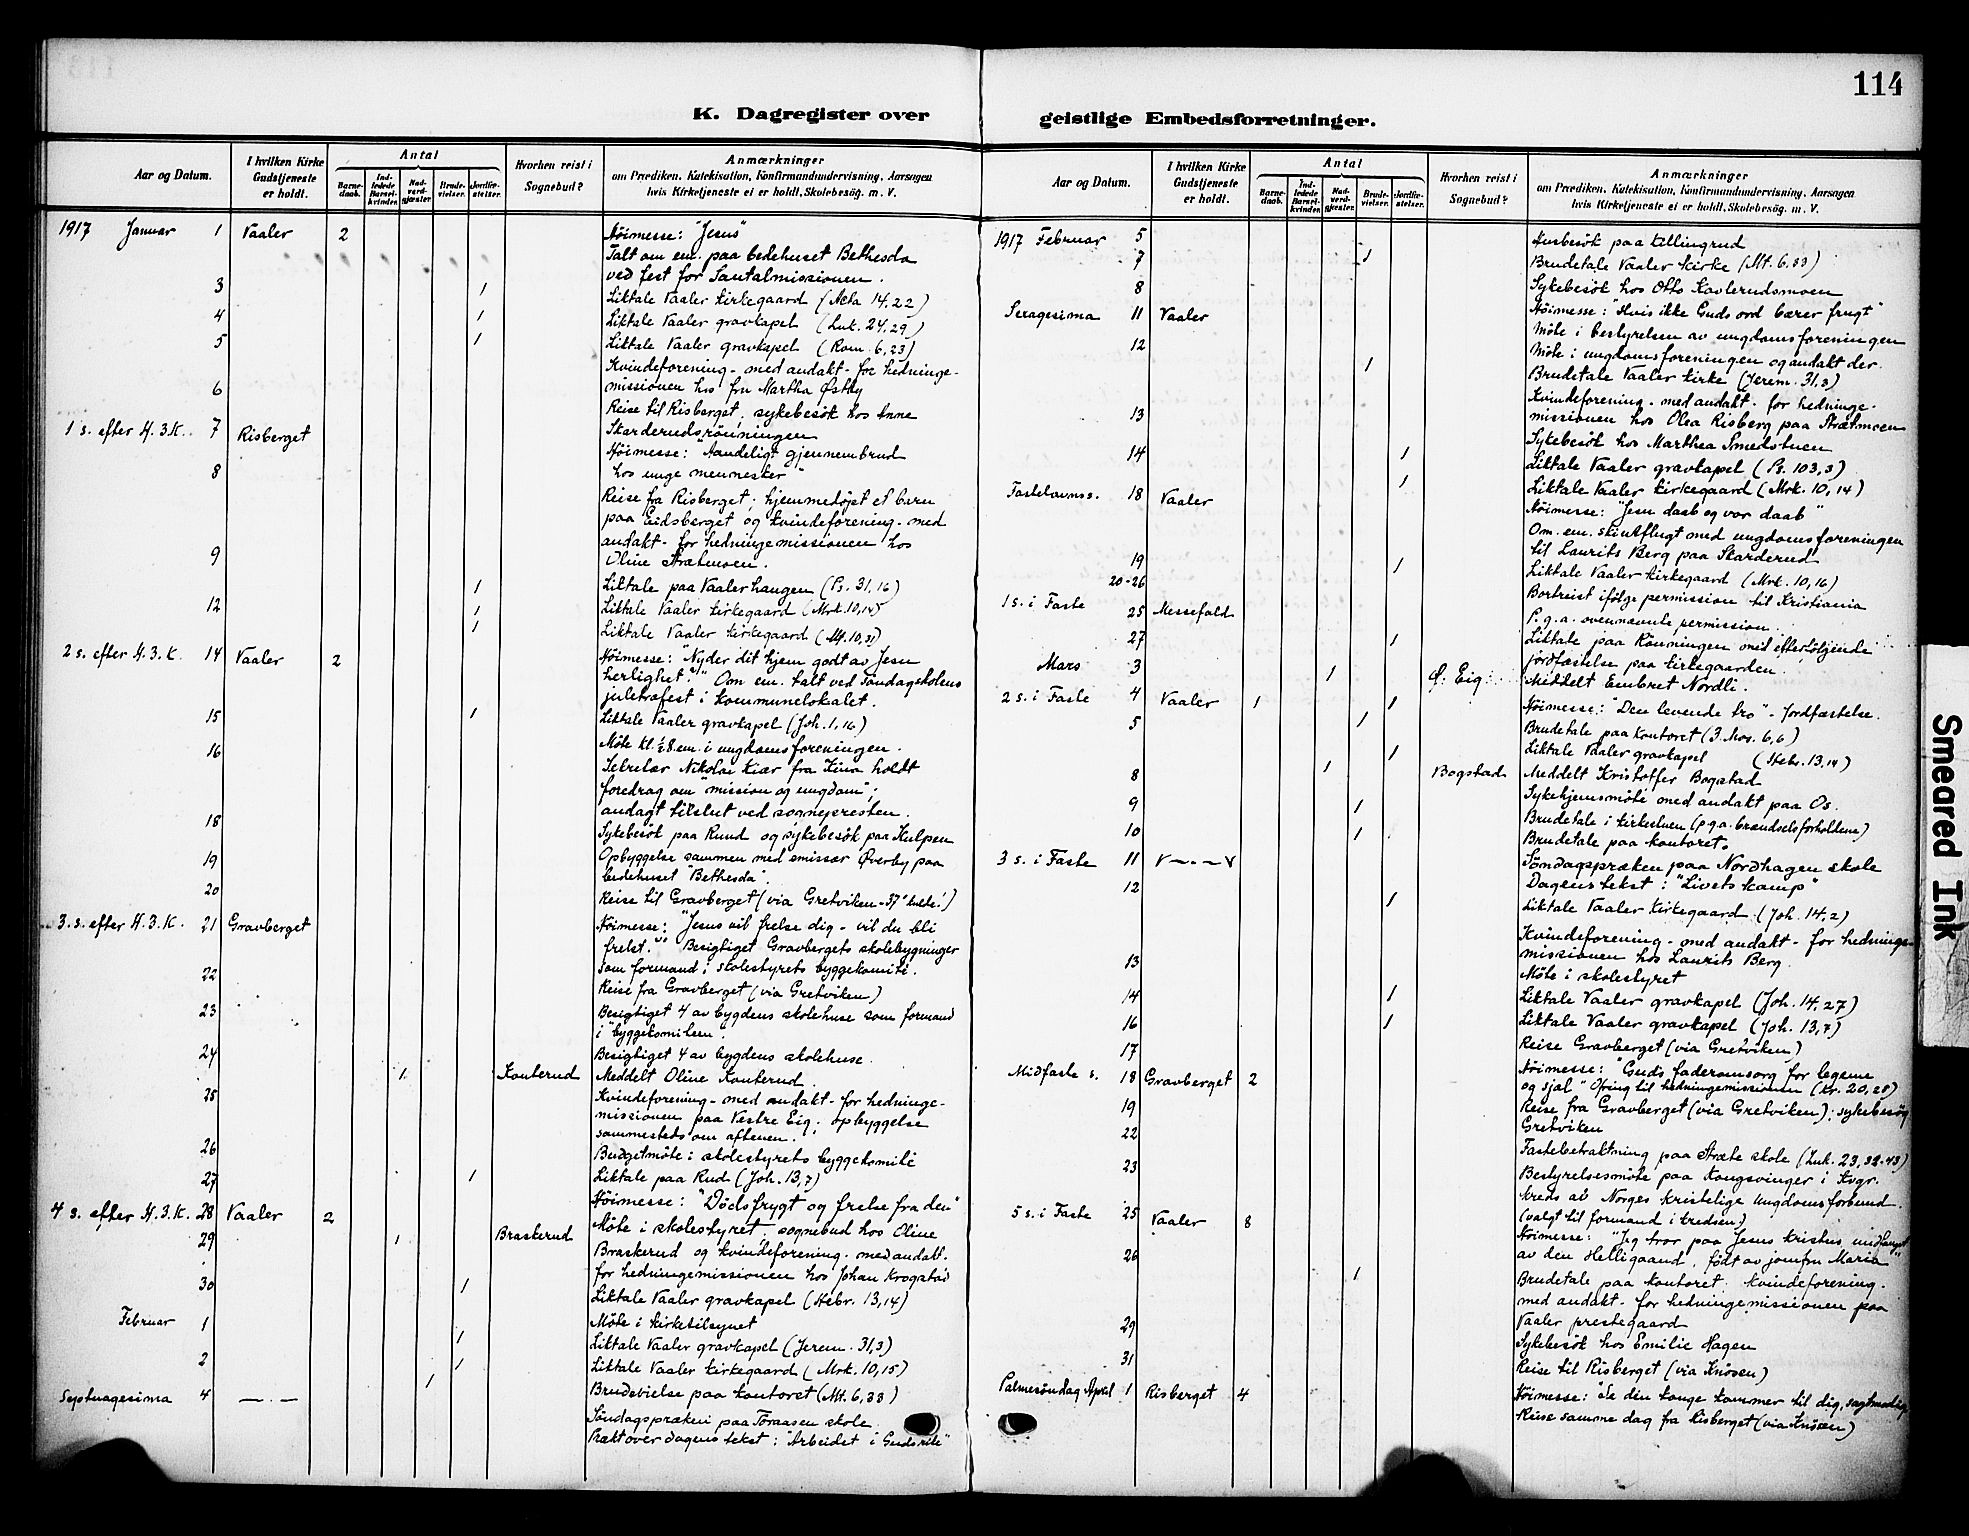 114
K. Dagregister over geistlige Embedsforretninger.
Aar og Datum.
I hvilken Kirke Gudstjeneste er holdt.
Antal
Barnedaab.
Indledede Barselkvinder.
Nadverdgjæster.
Brudevielser.
Jordfæstelser.
Hvorhen reist i Sognebud?
Anmærkninger
om Prædiken, Katekisation, Konfirmandundervisning, Aarsagen
hvis Kirketjeneste ei er holdt, Skolebesøg. m. V.
1917 Januar 1 Vaaler 2 Høimesse: "Jesus"
Talt om em. paa bedehuset Bethesda
ved fest for Santalmissionen.
3 1 Liktale Vaaler kirkegaard (Acta 14,22)
4 1 Liktale Vaaler gravkapel (Luk. 24,29)
5 1 Liktale Vaaler gravkapel (Rom. 6,23)
Kvindeforening - med andakt - for hedninge-
missionen hos fru Martha Østby
6 Reise til Risberget, sykebesøk hos Anne
Skarderudsrönningen
1 s. efter H.3.K. 7 Risberget Høimesse: Aandeligt gjennembrud
hos unge mennesker"
8 Reise fra Risberget; hjemmedøpt et barn
paa Eidsberget og kvindeforening - med
andakt - for hedningemissionen hos
Oline Strætmoen.
9 1 Liktale paa Vaalerhaugen (Ps. 31,16)
12 1 Liktale Vaaler kirkegaard (Mrk. 10,14)
1 Liktale Vaaler kirkegaard (Mt. 10,31)
2 s. efter H.3.K. 14 Vaaler 2 Høimesse: "Nyder dit hjem godt av Jesu
herlighet?" Om em. talt ved Søndagskolens
juletræfest i kommunelokalet.
15 1 Liktale Vaaler gravkapel (Joh. 1,16)
16 Möte kl. ½8 em. i ungdomsforeningen.
Sekretær Nikolai Kiær fra Kina holdt
foredrag om "mission og ungdom";
andagt tilslut ved sognepresten.
18 Sykebesök paa Rund og sykebesök paa Hulpen
19 Opbyggelse sammen med emissær Øverby paa
bedehuset "Bethesda".
20 Reise til Gravberget (via Gretviken - 37° kulde!)
3. s. efter H.3.K. 21 Gravberget Høimesse: "Jesus vil frelse dig - vil du bli
frelst?" Besigtiget Gravbergets skolebygninger
som formand i skolestyrets byggekomite.
22 Reise fra Gravberget (via Gretviken)
23 Besigtiget 4 av bygdens skolehuse som formand
i "byggekomiteen".
24 Besigtiget 4 av bygdens skolehuse.
1 Kouterud Meddelt Oline Kouterud.
25 Kvindeforening - med andakt - for hedninge-
missionen paa Vestre Eig; opbyggelse
sammesteds om aftenen.
26 Budgetmöte i skolestyrets byggekomite
27 1 Liktale paa Rud (Joh. 13,7)
4 s. efter H.3.K. 28 Vaaler 2 Høimesse: "Dödsfrygt og frelse fra den"
29 1 Braskerud Möte i skolestyret; sognebud hos Oline
Braskerud og kvindeforening - med andakt -
for hedningemissionen hos Johan Krogstad
30 1 Liktale Vaaler gravkapel (Hebr. 13,14)
Februar 1 Möte i kirketilsynet
1 Liktale Vaaler gravkapel (Jerem. 31,3)
2 1 Liktale Vaaler kirkegaard (Mrk. 10,15)
1 Brudevielse paa kontoret (Mt. 6,33)
Septuagesima 4 — . — Söndagspræken paa Toraasen skole
Præk. over dagens tekst: "Arbeidet i Guds rike"
Aar og Datum.
I hvilken Kirke Gudstjeneste er holdt.
Antal
Barnedaab.
Indledede Barselkvinder.
Nadverdgjæster.
Brudevielser.
Jordfæstelser.
Hvorhen reist i Sognebud?
Anmærkninger
om Prædiken, Katekisation, Konfirmandundervisning, Aarsagen
hvis Kirketjeneste ei er holdt, Skolebesøg. m. V.
1917 Februar 5 Husbesök paa Killingrud
7 1 Brudetale Vaaler kirke (Mt. 6,33)
8 Sykebesök hos Otto Kavlerudsmoen
Sexagesima 11 Vaaler Høimesse: "Hvis ikke Guds ord bærer frugt"
Möte i bestyrelsen av ungdomsforeningen
12 Möte i ungdomsforeningen og andakt der.
1 Brudetale Vaaler kirke (Jerem. 31,3)
Kvindeforening - med andakt - for hedninge-
13 missionen hos Olea Risberg paa Strætmoen
Sykebesök hos Marthea Smedstuen
14 1 Liktale Vaaler gravkapel (Ps. 103,3)
1 Liktale Vaaler kirkegaard (Mrk. 10,14)
Fastelavnss. 18 Vaaler Høimesse: "Jesu daab og vor daab"
Om em. skiutflugt med ungdomsforeningen
til Laurits Berg paa Skarderud
19 1 Liktale Vaaler kirkegaard (Mrk. 10,16)
20-26 Bortreist ifölge permission til Kristiania
1 s. i Faste 25 Messefald P.g.a. ovennævnte permission.
27 1 Liktale paa Rönningen med efterfölgende
jordfæstelse paa kirkegaarden.
Mars 3 1 Ø. Eig Meddelt Embret Nordli.
2 s. i Faste 4 Vaaler 1 1 Høimesse: "Den levende tro" - Jordfæstelse.
5 1 Brudetale paa kontoret (3. Mos. 6,6)
1 Liktale Vaaler gravkapel (Hebr. 13,14)
8 1 Bogstad Meddelt Kristoffer Bogstad
Sykehjemsmöte med andakt paa Os.
9 1 Brudetale i kirkestuen (p.g.a. brændselsforholdene)
10 1 Brudetale paa kontoret.
3 s. i Faste 11 V—..—V Söndagspræken paa Nordhagen skole
Dagens tekst: "Livets kamp"
12 1 Liktale Vaaler kirkegaard (Joh. 14,2)
Kvindeforening - med andakt - for hedninge-
missionen hos Laurits Berg.
13 Möte i skolestyret
14 1 Liktale Vaaler gravkapel (Joh. 14,27)
16 1 Liktale Vaaler gravkapel (Joh. 13,7)
17 Reise Gravberget (via Gretviken)
Midfaste s. 18 Gravberget 2 Høimesse: "Guds faderomsorg for legeme
og sjæl" Ofring til hedningemissionen (Kr. 20,28)
19 Reise fra Gravberget (via Gretviken); sykebesøg
Gretviken
22 Fastebetraktning paa Stræte skole (Luk. 23,32-43)
23 Bestyrelsesmöte paa Kongsvinger i Kvgr.
kreds av Norges kristelige Ungdomsforbund.
(valgt til formand i kredsen)
5 s. i Faste 25 Vaaler 8 Høimesse: "Jeg tror paa Jesus Kristus, undfanget
av den Helligaand, født av jomfru Maria"
26 1 Brudetale paa kontoret; kvindeforening -
med andakt - for hedningemissionen paa
Vaaler prestegaard
29 Sykebesök hos Emilie Hagen
31 Reise til Risberget (via Knösen)
Palmesöndag April 1 Risberget 4 Høimesse: "Se din konge kommer til dig, sagtmodig"
Reise samme dag fra Risberget (via Knösen)
Smeared Ink